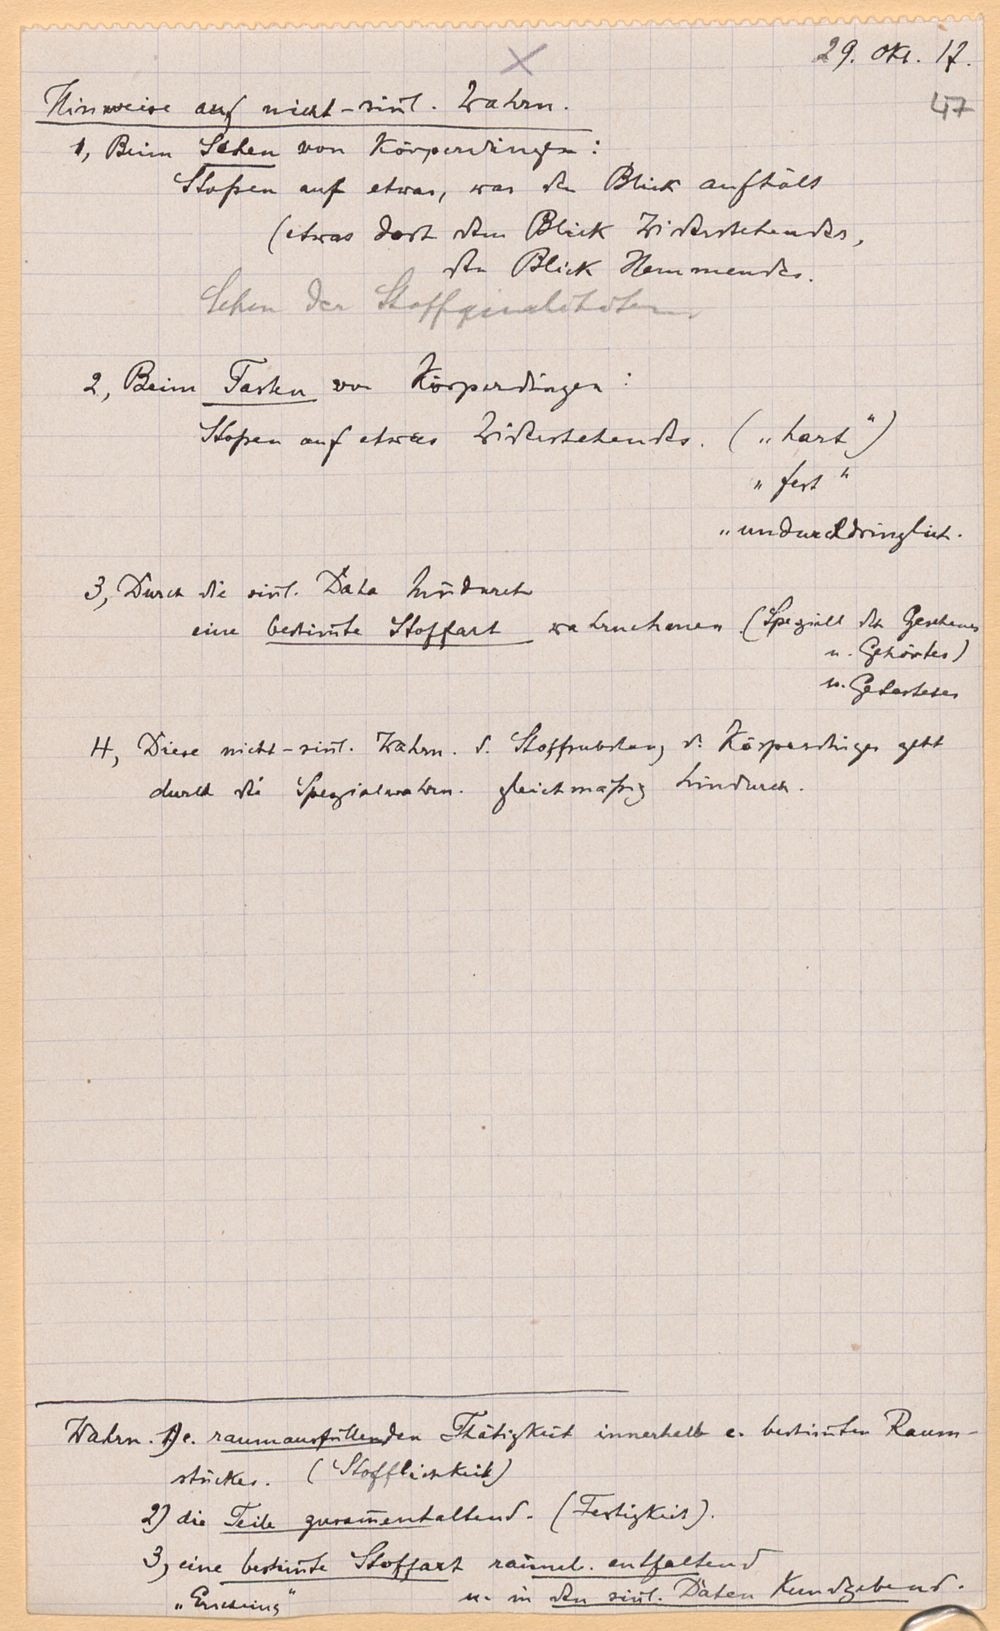 29. Okt. 17.
47
Hinweise auf nicht-sinl. Wahrn.
1, Beim Sehen von Körperdingen:
Stoßen auf etwas, was den Blick aufhält
(etwas dort dem Blick Widerstehendes,
den Blick Hemmendes.
Sehen der Stoffqualitäten
2, Beim Tasten von Körperdingen:
Stoßen auf etwas Widerstehendes. („hart")
„fest"
„undurchdringlich.
3, Durch die sinl. Data hindurch
eine bestimte Stoffart wahrnehmen (Speziell des Gesehenes
u. Gehörtes)
u. Getastetes
4, Diese nicht-sinl. Wahrn. d. Stoffsubstanz d. Körperdinges geht
durch die Spezialwahrn. gleichmäßig hindurch.
Wahrn. 1) e. raumausfüllenden Thätigkeit innerhalb e. bestimten Raum-
stückes. (Stofflichkeit)
2) die Teile zusamenhaltend. (Festigkeit).
3, eine bestimte Stoffart räuml. entfaltend
u. in den sinl. Daten Kundgebend.